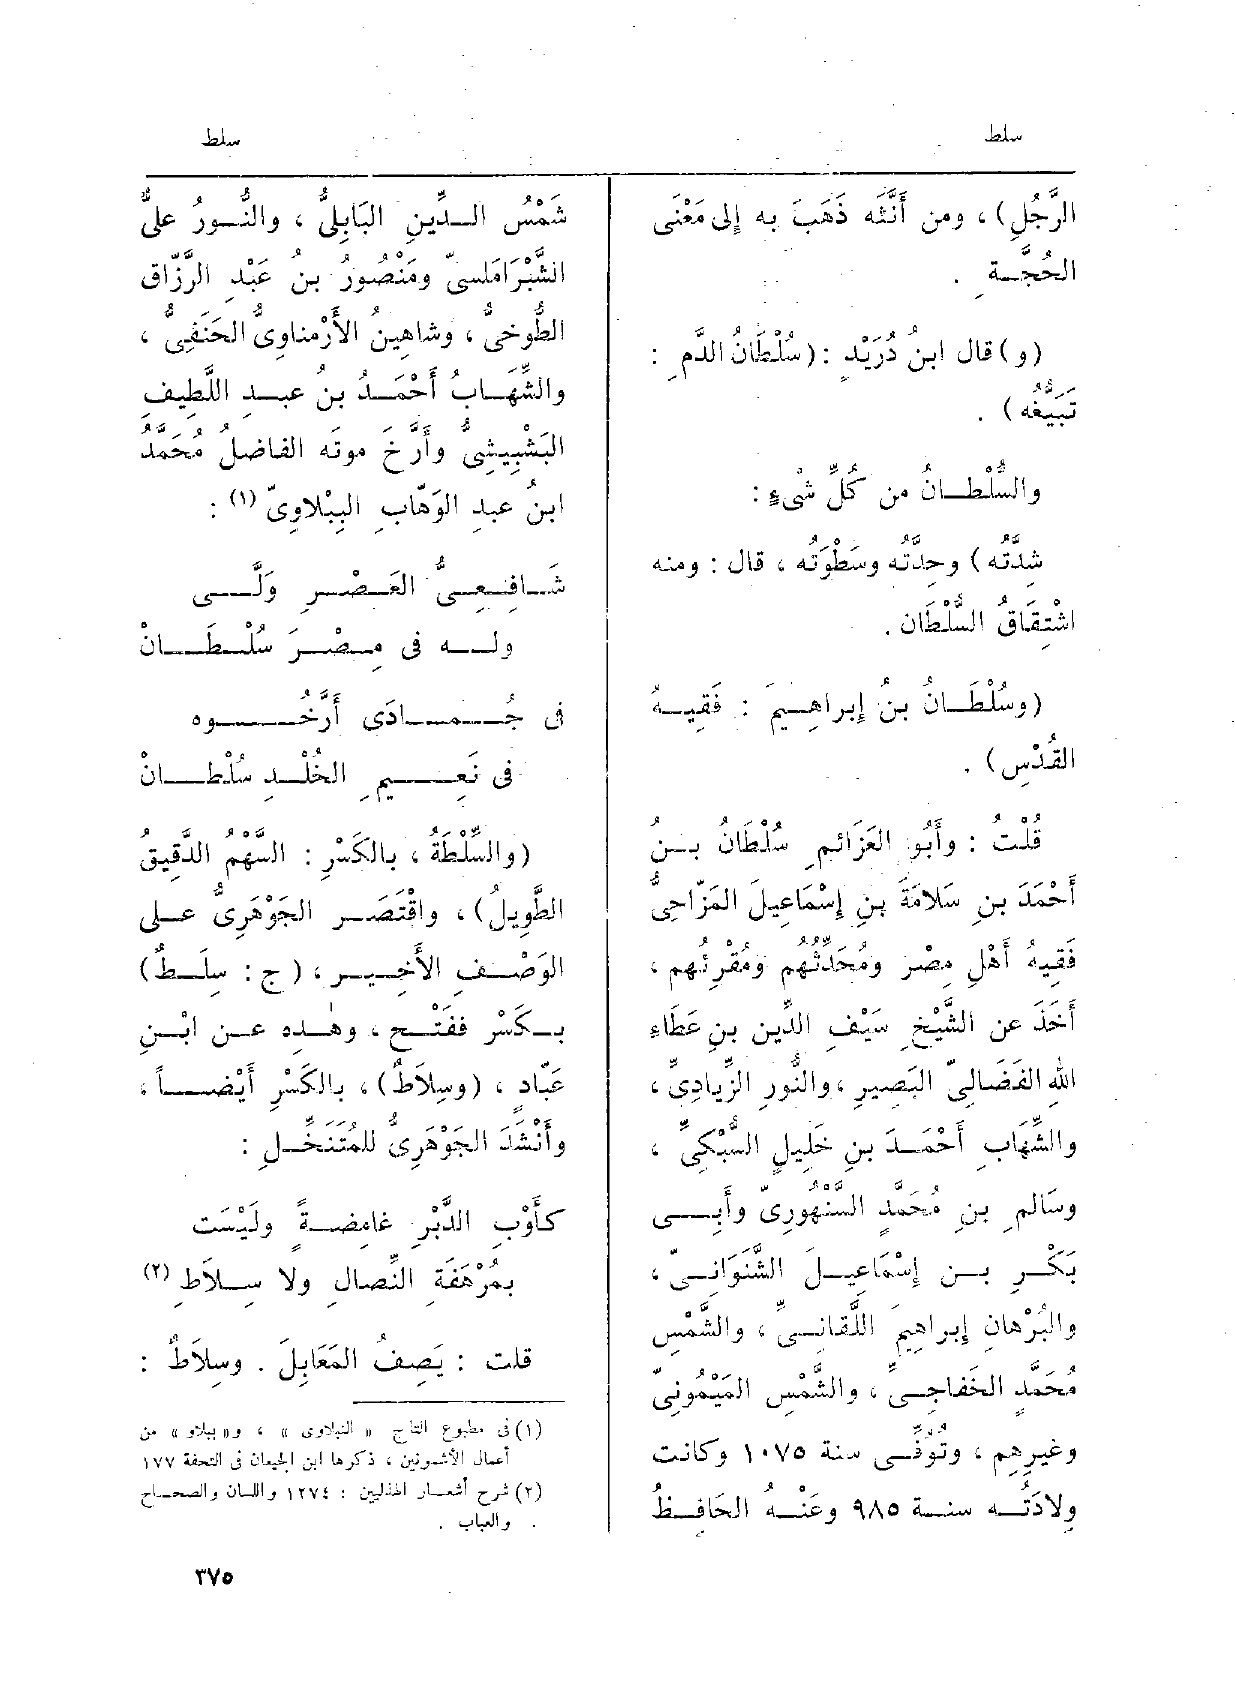 سلط
سلط
الرَّجُلِ) ، ومن أَنَّثَه ذَهَبَ به إلى مَعْنَى
الحُجَّـةِ .
(و) قال ابنُ دُرَيْدٍ : (سُلْطَانُ الدَّمِ :
تَبَيُّغُه) .
والسُّلْطَـانُ من كُلِّ شَىْءٍ :
شِدَّتُه ) وحِدَّتُه وسَطْوَتُه ، قال : ومنه
اشْتِقَاقُ السُّلْطَان .
(وسُلْطَـانُ بنُ إبراهِـيمَ : فَقِيـهُ
القُدْسِ) .
قُلْتُ : وأَبُو العَزَائمِ سُلْطَانُ بـنُ
أَحْمَدَ بنِ سَلامَةَ بنِ إسْمَاعِيلَ المَزّاحِىُّ
فَقِيهُ أَهْلِ مِصْرَ ومُحَدِّثُهُم ومُقْرِئُهم ،
أَخَذَ عن الشَّيْخِ سَيْفِ الدِّينِ بنِ عَطَاءِ
اللهِ الفَضَـالىِّ البَصِيرِ ، والنُّورِ الزِّيادِىِّ ،
والشِّهَابِ أَحْمَـدَ بنِ خَلِيلٍ السُّبْكِىِّ ،
وسَالمِ بنِ مُحَمَّدٍ السَّنْهُورِىِّ وأَبِــى
بَكْـرِ بـنِ إسْمَاعِيـلَ الشَّنَوَانِـىِّ ،
والبُرْهَانِ إبراهِيمَ اللَّقَانِـىِّ ، والشَّمْسِ
مُحَمَّدٍ الخَفَاجِـىِّ ، والشَّمْسِ المَيْمُونِىِّ
وغيرِهِم ، وتُوفِّـى سنة ١٠٧٥ وكانت
وِلادَتُـه سنـة ٩٨٥ وعَنْـهُ الحَافِـظُ
شَمْسُ الـدِّينِ البَابِلىُّ ، والنُّـورُ علىٌّ
الشَّبْرَامَلسىّ ومَنْصُورُ بنُ عَبْدِ الرَّزّاقِ
الطُّوخىُّ ، وشاهِينُ الأَرْمناوِىُّ الحَنَفِىُّ ،
والشِّهَـابُ أَحْمَـدُ بن عبـد اللَّطِيفِ
البَشْبِيشِىُّ وأَرَّخَ موتَه الفاضلُ مُحَمَّدُ
ابنُ عبدِ الوَهّابِ الببْلاوِىّ (١) :
شَـافِـعِـىُّ العَـصْـرِ وَلَّــى
ولــه فى مِـصْـرَ سُلْـطَــانْ
فى جُـمــادَى أَرَّخُـــوه
فى نَعِـــيمِ الخُلْـدِ سُلْطــانْ
(والسِّلْطَةُ ، بالكَسْرِ : السَّهْمُ الدَّقِيقُ
الطَّوِيلُ) ، واقْتَصَـر الجَوْهَرِىُّ عـلى
الوَصْـفِ الأَخِـيـر ، ( ج : سِلَـطٌ)
بـكَسْر ففَتْـح ، وهَـذِه عـن ابْـنِ
عَبّاد ، (وسِلاَطٌ) ، بالكَسْرِ أَيْضــاً ،
وأَنْشَدَ الجَوْهَرِىُّ للمُتَنَخِّـلِ :
كأَوْبِ الدَّبْرِ غامِضـةً ولَيْسَت
بمُرْهَفَةِ النِّصالِ ولا سِــلاَطِ (٢)
قلت : يَصِفُ المَعَابِلَ . وسِلاَطٌ :
(١) فى مطبوع التاج « النبلاوى » ، و« ببلاو » من
أعمال الأشمونين ، ذكرها ابن الجيعان فى التحفة ١٧٧
(٢) شرح أشعـار الهذليين : ١٢٧٤ واللسان والصحـاح
والعباب .
٣٧٥